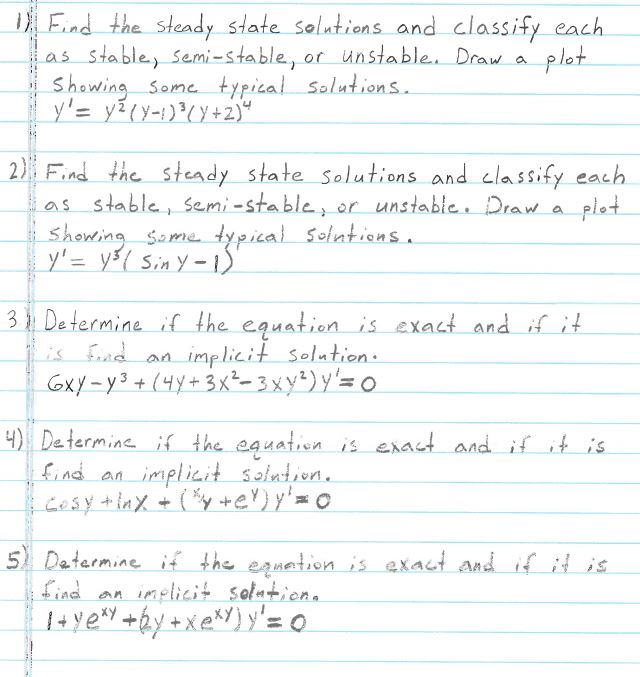 1) Find the steady state solutions and classify each
as stable, semi-stable, or unstable. Draw a plot
showing some typical solutions.
y' = y²(y-1)³(y+2)⁴
2) Find the steady state solutions and classify each
as stable, semi-stable, or unstable. Draw a plot
showing some typical solutions.
y' = y³(sin y - 1)
3) Determine if the equation is exact and if it
is find an implicit solution.
6xy - y³ + (4y + 3x² - 3xy²)y' = 0
4) Determine if the equation is exact and if it is
find an implicit solution.
cosy + lnx + (x/y + eʸ)y' = 0
5) Determine if the equation is exact and if it is
find an implicit solution.
1 + yeˣʸ + (2y + xeˣʸ)y' = 0